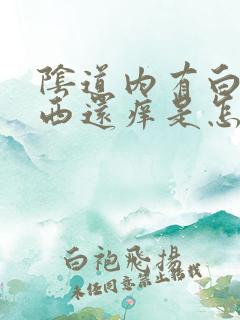 陰道内有白
西還痒是怎
白袍飛揚
未经同意禁止转载